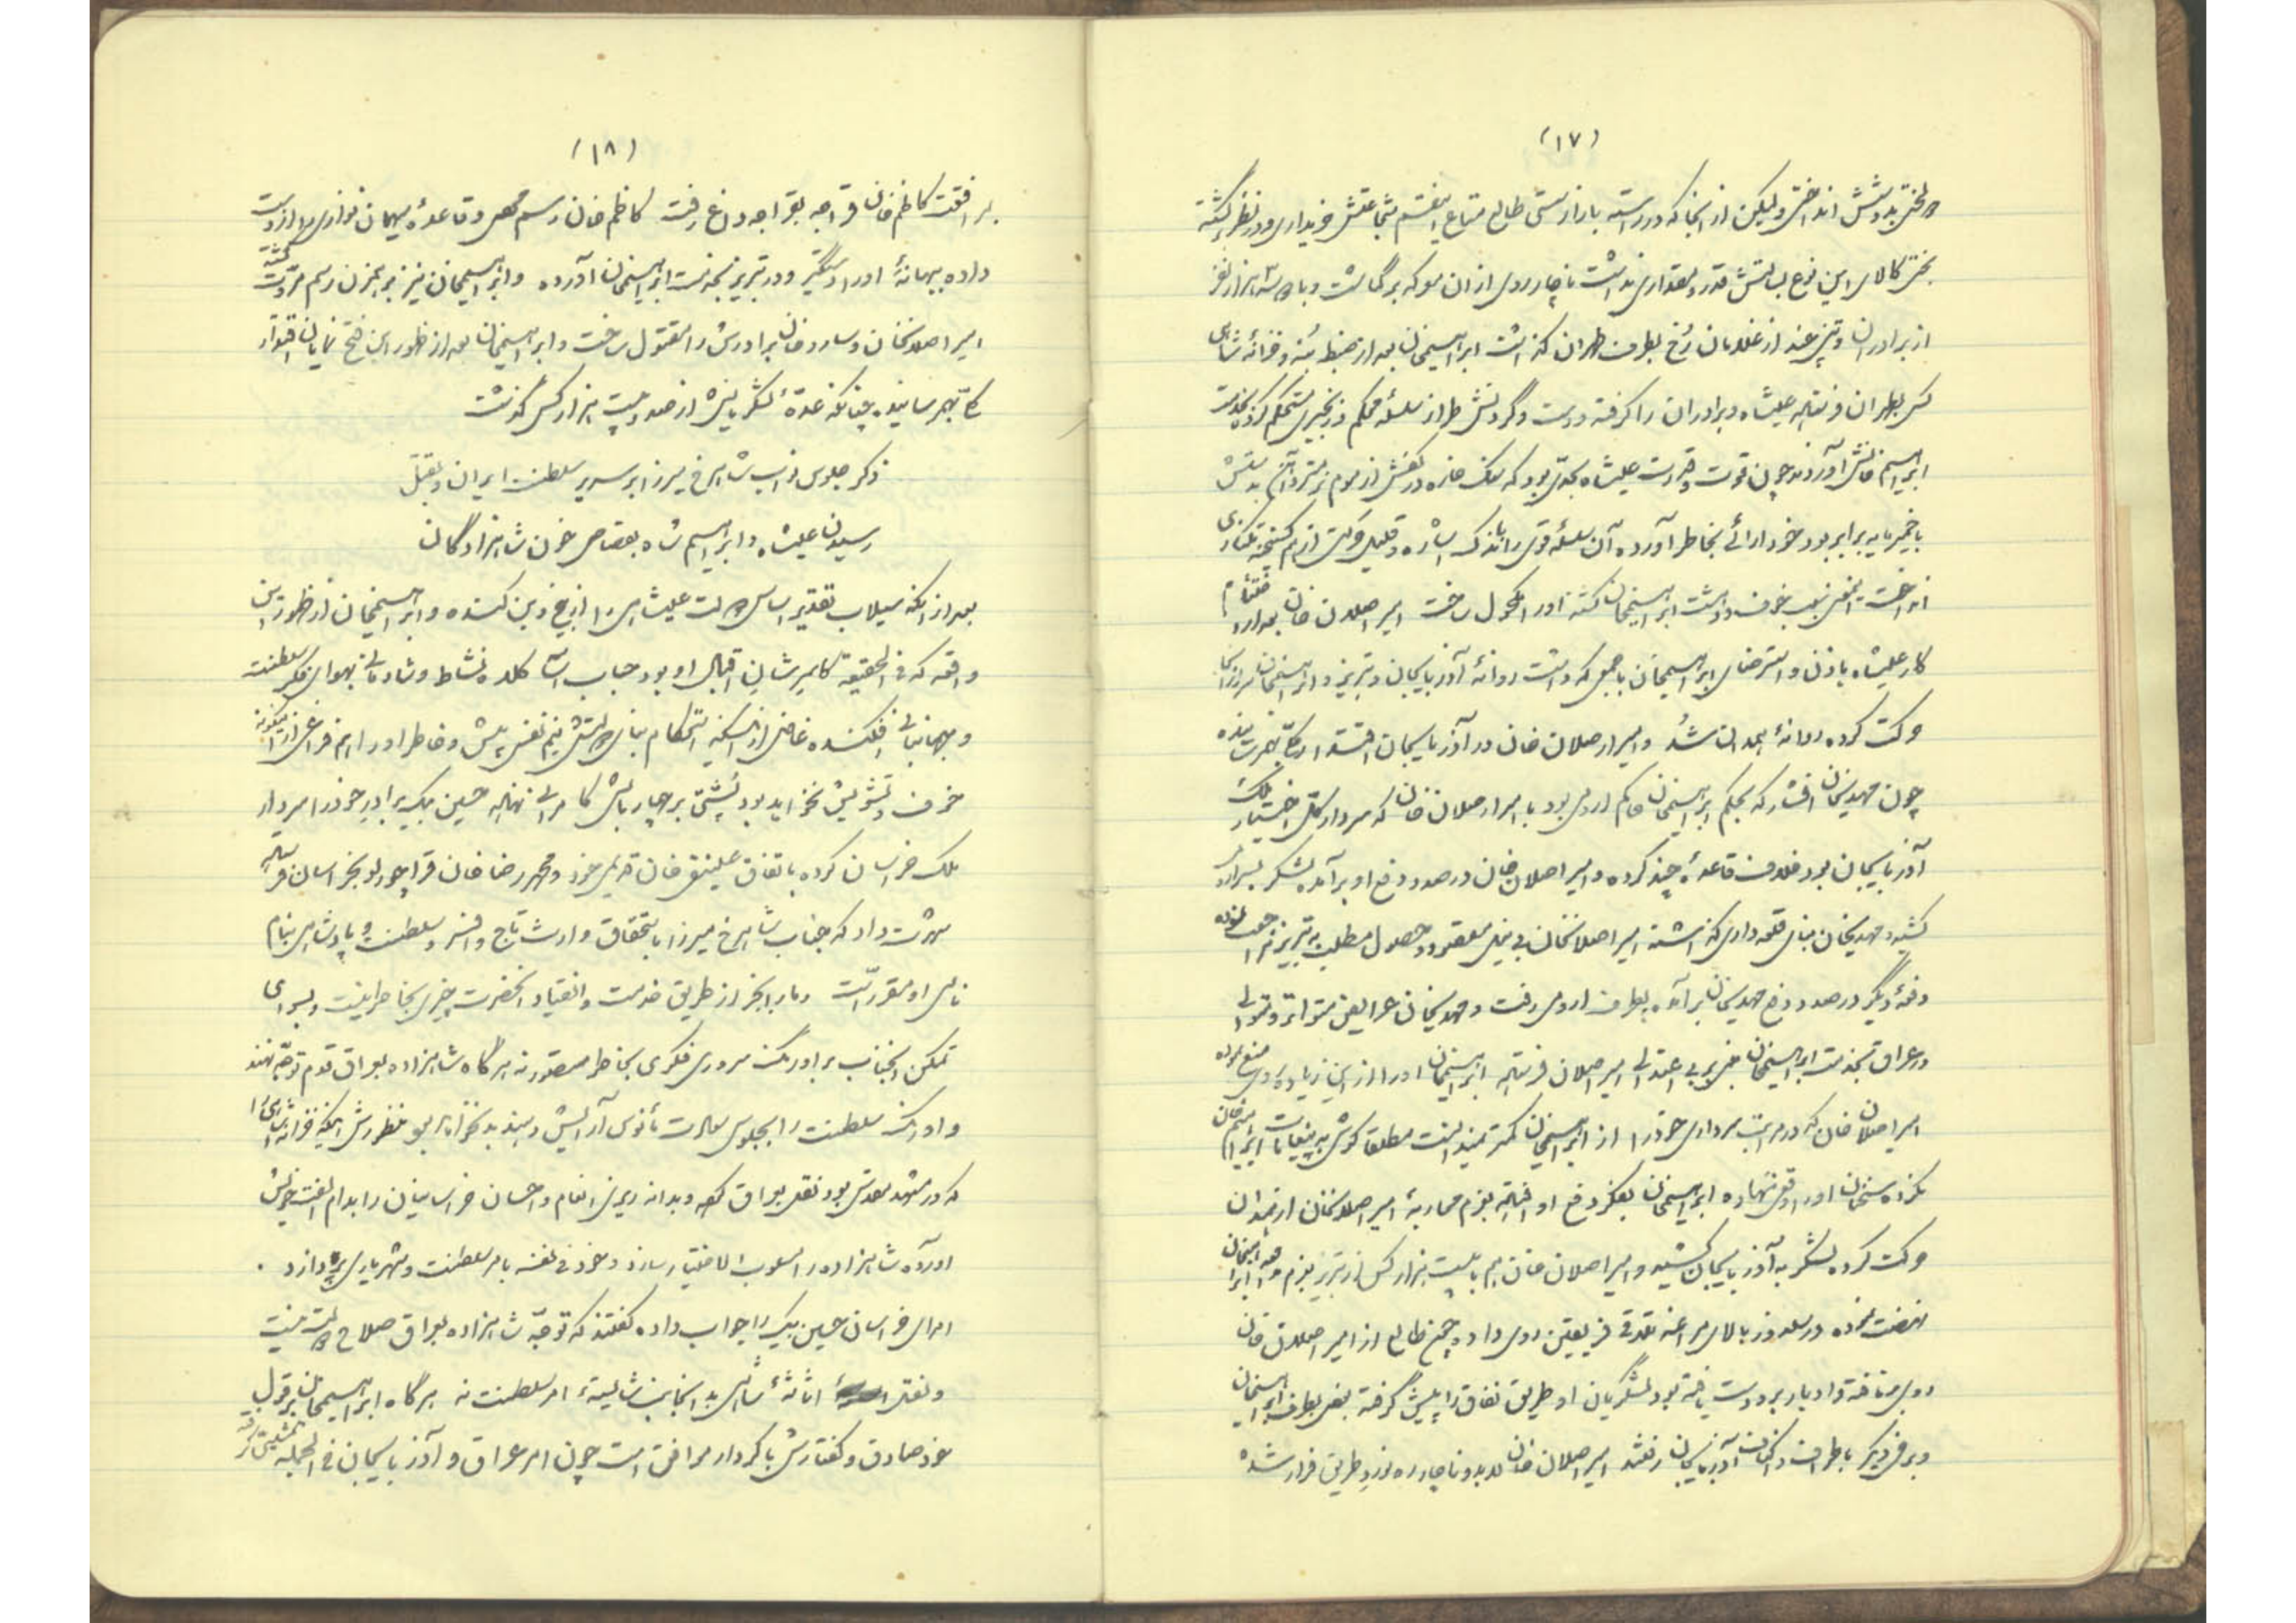 (١٧)
ولیکن از آنجا که در راسته بازار طالع متاع خریداری و در نظر
کالای این نوع قدر و مقداری نداشت ناچار روی از آن معرکه برگاشت و با هزار نفر
از برادران و تنی چند از غلامان رُخ بطرف طهران گذاشت ابراهیمخان بعد از ضبط بُنه و خزانه شاهی
کس بطهران فرستاده علیشاه و برادران را گرفته دست و گردنش محکم
ابراهیم خانش آوردند چون قوت و قدرت علیشاه بحدّی بود که سنگ خاره در کفش از موم نرمتر و آهن
با خمیر مایه برابر بود آن سلسله قوی را باندک اشاره از هم گسیخته
انداخت خوف و دهشت ابراهیمخان گشته او را مکحول ساخت امیر اصلان خان بعد از اختتام
کار علیشاه باذن و استرضای ابراهیمخان با جمعی که داشت روانهٔ آذربایجان و تبریز و ابراهیمخان از آنجا
حرکت کرده روانهٔ همدان شد و امیر ارصلان خان در آذربایجان اقتدار کلّی بهم رسانیده
چون مهدیخان افشار که بحکم ابراهیمخان حاکم ارومی بود با امیر ارصلان خان که سردار کل
آذربایجان بود خلاف قاعدهٔ چند کرده و امیر اصلان خان در صدد دفع او برآمده لشکر بسر او
کشید و مهدیخان بنای قلعه داری گذاشته امیر اصلانخان بی نیل مقصود و حصول مطلب به تبریز مراجعت نموده
دفعهٔ دیگر در صدد دفع مهدیخان برآمده بطرف ارومی رفت و مهدیخان عرایض متواتر و متوالی
در عراق بخدمت ابراهیمخان مبنی بر بی اعتدالی امیر اصلان فرستاده ابراهیمخان او را از این زیاده روی منع نموده
امیر اصلان خان که در مراتب سرداری خود را از ابراهیمخان کمتر نمیدانست مطلقا گوش به پیغامات ابراهیم خان
نکرده سخنان او را وقعی ننهاده ابراهیمخان بفکر دفع او افتاده بعزم محاربهٔ امیر اصلانخان از همدان
حرکت کرده لشکر به آذربایجان کشید و امیر اصلان خان هم با بیست هزار کس از تبریز بعزم
نهضت نموده در سلدوز بالای مراغه تلاقی فریقین روی داد و چون طالع از امیر اصلان خان
روی بر تافته و ادبار بر او دست یافته بود لشگریان او طریق نفاق را پیش گرفته بعضی بطرف ابراهیمخان
و برخی دیگر باطراف و اکناف آذربایجان رفتند امیر اصلان خان لابد و ناچار ره نورد طریق فرار شده
(١٨)
بمرافقت کاظم خان قراجه بقراجه داغ رفت کاظم خان رسم و قاعدهٔ میهمان نوازی را از دست
داده ببهانهٔ او را دستگیر و در تبریز بخدمت ابراهیمخان آورده و ابراهیمخان نیز رسم مروّت گشته
امیر اصلانخان و ساروخان برادرش را مقتول ساخت و ابراهیمخان بعد از ظهور این فتح نمایان اقتدار
کلّی بهم رسانیده چنانکه عدهٔ لشکریانش از صد و بیست هزار کس گذشت
ذکر جلوس نواب شاهرخ میرزا بر سریر سلطنت ایران و بقتل
رسیدن علیشاه و ابراهیم شاه بقصاص خون شاهزادگان
بعد از آنکه سیلاب تقدیر اساس دولت علیشاهی را از بیخ و بن کنده و ابراهیمخان از ظهور این
واقعه که فی الحقیقه اقبال او بود حباب آسا کلاه نشاط و شادمانی بهوای فکر سلطنت
و جهانبانی افکنده غافل از اینکه استحکام بنای دولتش نیم نفس بیش و خاطر او را هم فراغی از اینگونه
خوف و تشویش نخواهد بود پشتی بر چهار بالش کامرانی نهاده حسین بیک برادر خود را سردار
ملک خراسان کرده باتفاق علینقی خان و محمد رضا خان قراچورلو بخراسان
شهرت داد که جناب شاهرخ میرزا باستحقاق وارث تاج و افسر و سلطنت و پادشاهی بنام
نامی او مقرر است و ما را بجز از طریق خدمت و انقیاد آنحضرت چیزی بخاطر نیست و بسوای
تمکن آنجناب بر اورنگ سروری فکری بخاطر متصور نه هرگاه شاهزاده بعراق قدم توجه نهند
و اورنگ سلطنت را بجلوس سعادت مأنوس آرایش دهند منظورش اینکه خزانه شاهی را
که در مشهد مقدس بود نقل بعراق کرده و بدانه ریزی انعام و احسان خراسانیان را بدام الفت خویش
آورده شاهزاده را مسلوب الاختیار سازد و خود فی نفسه بامر سلطنت و شهریاری پردازد .
امرای خراسان حسین بیک را جواب داده گفتند که توجّه شاهزاده بعراق صلاح دولت نیست
و نقل اثاثهٔ شاهی بدانجانب شایستهٔ امر سلطنت نه هرگاه ابراهیمخان بر قول
خود صادق و گفتارش با کردار موافق است چون امر عراق و آذربایجان فی الجمله